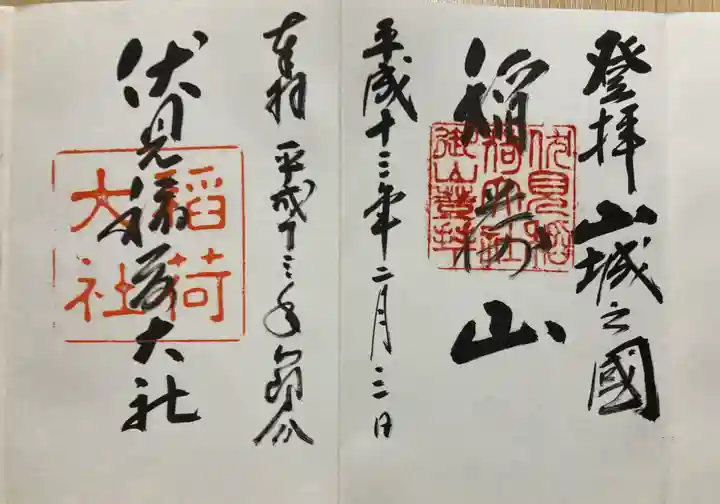 登拝 山城之國
稲荷山
伏見稲
荷大社
御山登拝
平成十三年二月三日
奉拝 平成十三年節分
伏見稲荷大社
稲荷
大社